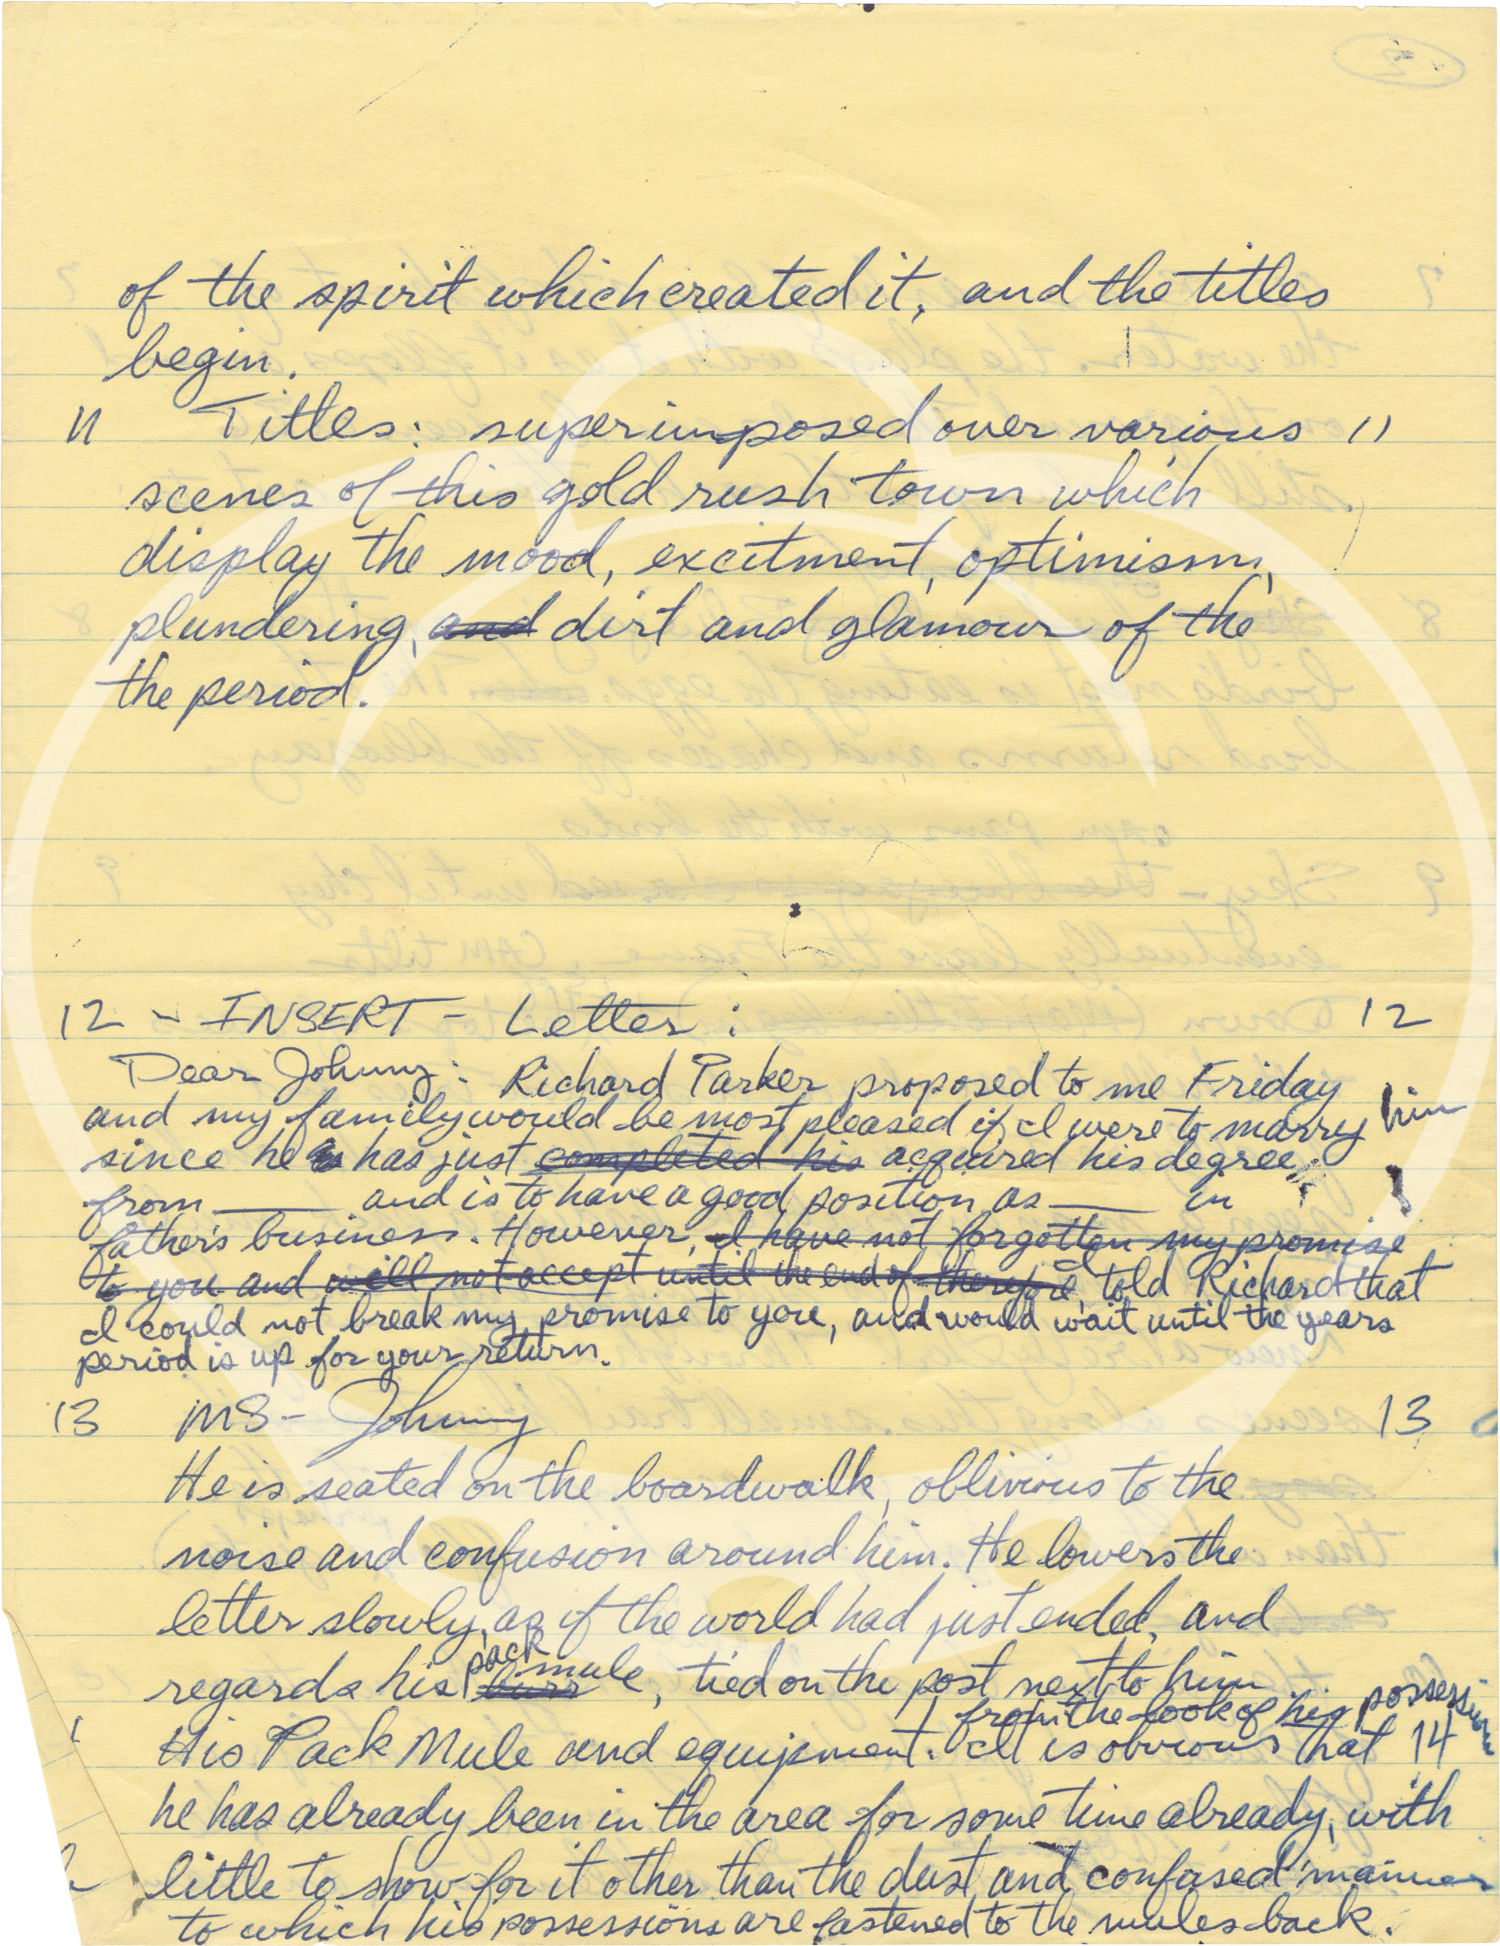 2
of the spirit which created it, and the titles
begin.
11 Titles: superimposed over various 11
scenes of this gold rush town which
display the mood, excitment, optimism,
plundering, and dirt and glamour of the
the period.
12 - INSERT - Letter: 12
Dear Johnny: Richard Parker proposed to me Friday
and my family would be most pleased if I were to marry him
since he is has just completed his acquired his degree
from ____ and is to have a good position as ____ in
father's business. However, I have not forgotten my promise
to you and will not accept until the end of therefore I told Richard that
I could not break my promise to you, and would wait until the years
period is up for your return.
13 MS - Johnny 13
He is seated on the boardwalk, oblivious to the
noise and confusion around him. He lowers the
letter slowly, as if the world had just ended, and
regards his burro pack mule, tied on the post next to him
from the look of his possessions
His Pack Mule and equipment. It is obvious that 14
he has already been in the area for some time already, with
little to show for it other than the dust and confused manner
to which his possessions are fastened to the mules back.